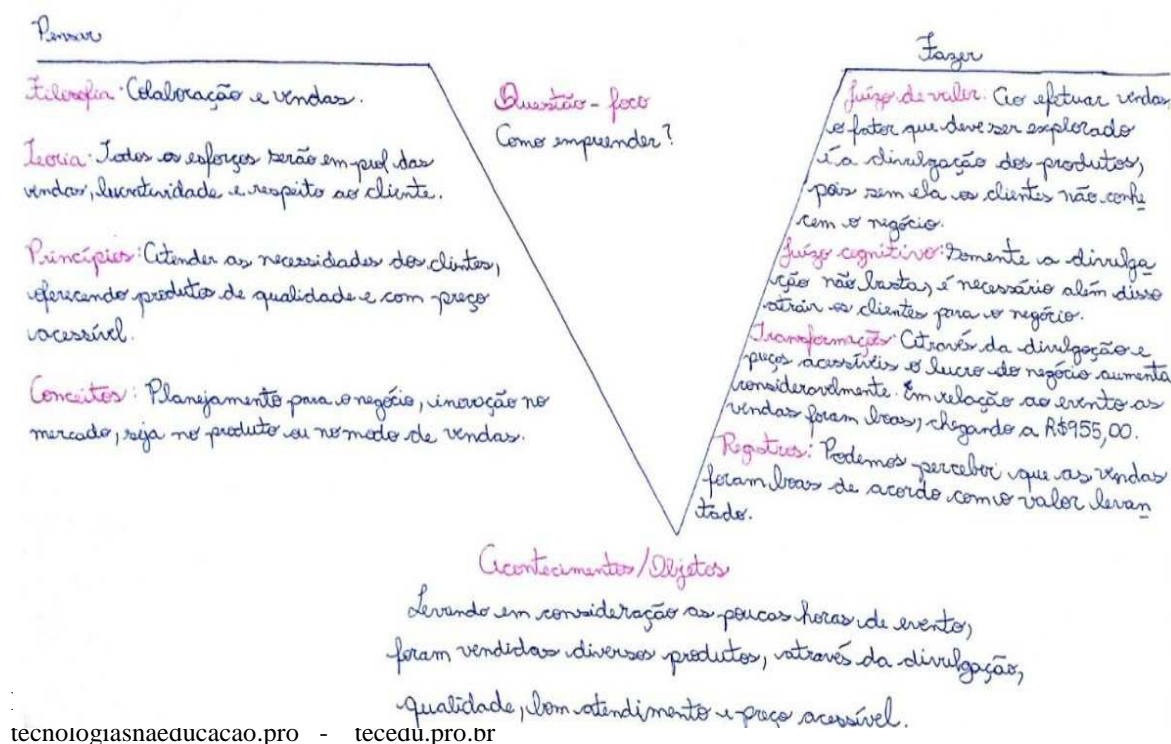 Pensar
Filosofia: Colaboração e vendas.
Teoria: Todos os esforços serão em prol das
vendas, lucratividade e respeito ao cliente.
Princípios: Atender as necessidades dos clientes,
oferecendo produtos de qualidade e com preço
acessível.
Conceitos: Planejamento para o negócio, inovação no
mercado, seja no produto ou no modo de vendas.
Questão - foco
Como empreender?
Fazer
Juízo de valor: Ao efetuar vendas,
o fator que deve ser explorado
é a divulgação dos produtos,
pois sem ela os clientes não conhe
cem o negócio.
Juízo cognitivo: Somente a divulga
ção não basta, é necessário além disso
atrair os clientes para o negócio.
Transformação: Através da divulgação e
preços acessíveis o lucro do negócio aumenta
consideravelmente. Em relação ao evento as
vendas foram boas, chegando a R$955,00.
Registros: Podemos perceber que as vendas
foram boas de acordo com o valor levan
tado.
Acontecimentos/Objetos
Levando em consideração as poucas horas de evento,
foram vendidos diversos produtos, através da divulgação,
qualidade, bom atendimento e preço acessível.
tecnologiasnaeducacao.pro - tecedu.pro.br